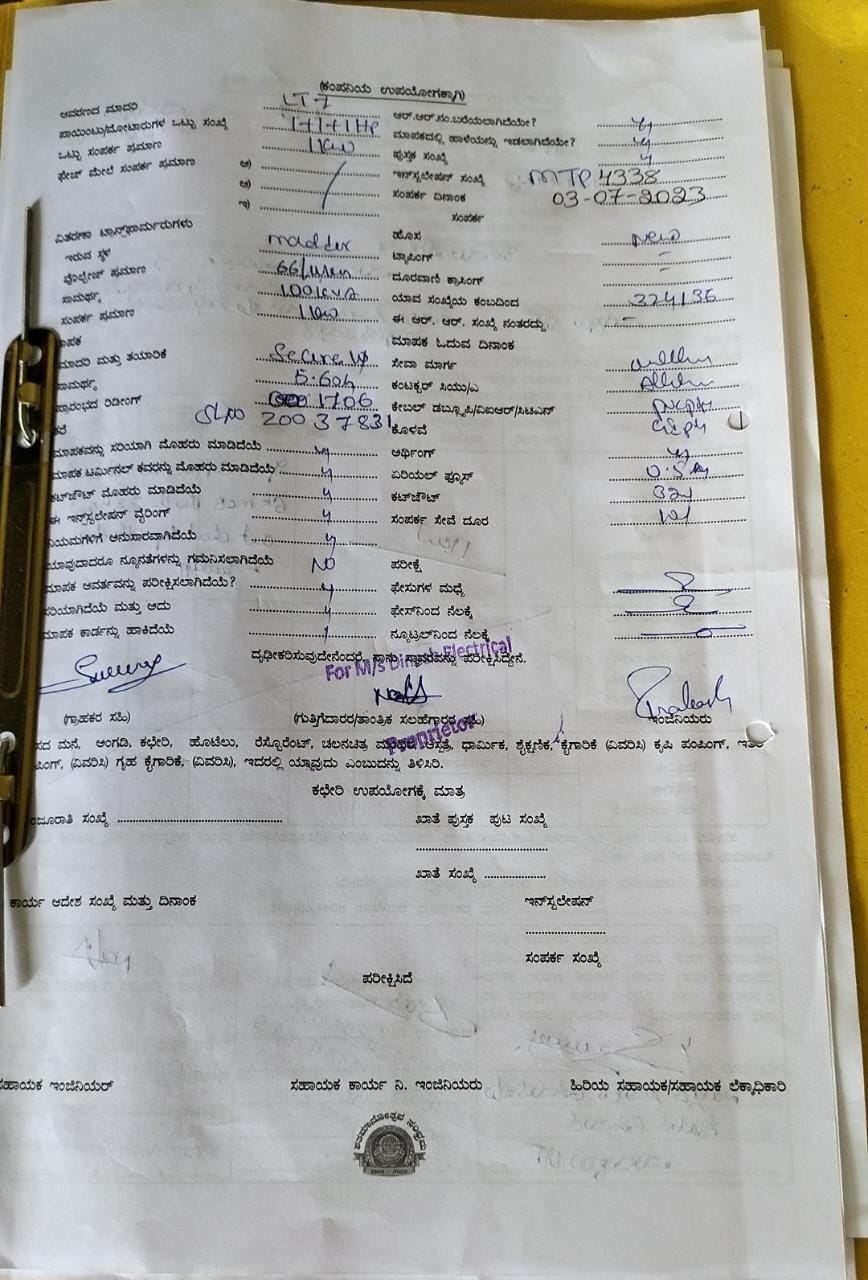 (ಕಂಪನಿಯ ಉಪಯೋಗಕ್ಕಾಗಿ)
ಆವರಣದ ಮಾದರಿ LT 7 ಆರ್.ಆರ್.ನಂ.ಬರೆಯಲಾಗಿದೆಯೇ? y
ಪಾಯಿಂಟು/ಮೋಟಾರುಗಳ ಒಟ್ಟು ಸಂಖ್ಯೆ 1+1+1 HP ಮಾಪಕದಲ್ಲಿ ಹಾಳೆಯನ್ನು ಇಡಲಾಗಿದೆಯೇ? y
ಒಟ್ಟು ಸಂಪರ್ಕ ಪ್ರಮಾಣ 1 Kw ಪುಸ್ತಕ ಸಂಖ್ಯೆ y
ಫೇಜ್ ಮೇಲೆ ಸಂಪರ್ಕ ಪ್ರಮಾಣ ಅ) ಇನ್‌ಸ್ಟಲೇಷನ್ ಸಂಖ್ಯೆ MTP 4338
ಆ) ಸಂಪರ್ಕ ದಿನಾಂಕ 03-07-2023
ಇ) ಸಂಪರ್ಕ
ವಿತರಣಾ ಟ್ರಾನ್ಸ್‌ಫಾರ್ಮರುಗಳು ಹೊಸ New
ಇರುವ ಸ್ಥಳ ಟ್ಯಾಪಿಂಗ್ -
ವೊಲ್ಟೇಜ್ ಪ್ರಮಾಣ ದೂರವಾಣಿ ಕ್ರಾಸಿಂಗ್ -
ಸಾಮರ್ಥ್ಯ 100 kva ಯಾವ ಸಂಖ್ಯೆಯ ಕಂಬದಿಂದ 324136
ಸಂಪರ್ಕ ಪ್ರಮಾಣ 1 Kw ಈ ಆರ್. ಆರ್. ಸಂಖ್ಯೆ ನಂತರದ್ದು -
ಾಪಕ ಮಾಪಕ ಓದುವ ದಿನಾಂಕ
ಮಾದರಿ ಮತ್ತು ತಯಾರಿಕೆ Secure ಸೇವಾ ಮಾರ್ಗ
ಸಾಮರ್ಥ್ಯ ಕಂಟಕ್ಟರ್ ಸಿಯು/ಎ
ಪ್ರಾರಂಭದ ರಿಡೀಂಗ್ 1706 ಕೇಬಲ್ ಡಬ್ಲ್ಯೂಪಿ/ವಿಐಆರ್/ಸಿಟಿಎನ್
ರೆ SL NO 20037831 ಕೊಳವೆ
ಮಾಪಕವನ್ನು ಸರಿಯಾಗಿ ಮೊಹರು ಮಾಡಿದೆಯೆ y ಅರ್ಥಿಂಗ್ y
ಮಾಪಕ ಟರ್ಮಿನಲ್ ಕವರನ್ನು ಮೊಹರು ಮಾಡಿದೆಯೆ y ಏರಿಯಲ್ ಫ್ಯೂಸ್
ಕಟ್‌ಔಟ್ ಮೊಹರು ಮಾಡಿದೆಯೆ y ಕಟ್‌ಔಟ್
ಈ ಇನ್‌ಸ್ಟಲೇಷನ್ ವೈರಿಂಗ್ y ಸಂಪರ್ಕ ಸೇವೆ ದೂರ
ನಿಯಮಗಳಿಗೆ ಅನುಸಾರವಾಗಿದೆಯೆ y
ಯಾವುದಾದರೂ ನ್ಯೂನತೆಗಳನ್ನು ಗಮನಿಸಲಾಗಿದೆಯೆ NO ಪರೀಕ್ಷೆ
ಮಾಪಕ ಆವರ್ತವನ್ನು ಪರೀಕ್ಷಿಸಲಾಗಿದೆಯೆ? y ಫೇಸುಗಳ ಮಧ್ಯೆ
ಸರಿಯಾಗಿದೆಯೆ ಮತ್ತು ಅದು y ಫೇಸ್‌ನಿಂದ ನೆಲಕ್ಕೆ
ಮಾಪಕ ಕಾರ್ಡನ್ನು ಹಾಕಿದೆಯೆ ನ್ಯೂಟ್ರಲ್‌ನಿಂದ ನೆಲಕ್ಕೆ
ದೃಢೀಕರಿಸುವುದೇನೆಂದರೆ, ನಾನು ಸ್ಥಾವರವನ್ನು ಪರೀಕ್ಷಿಸಿದ್ದೇನೆ.
For M/s Electrical
(ಗ್ರಾಹಕರ ಸಹಿ) (ಗುತ್ತಿಗೆದಾರರ/ತಾಂತ್ರಿಕ ಸಲಹೆಗಾರರ ಸಹಿ) ಇಂಜಿನಿಯರು
Proprietor
ಸದ ಮನೆ, ಅಂಗಡಿ, ಕಛೇರಿ, ಹೊಟೆಲು, ರೆಸ್ಟೊರೆಂಟ್, ಚಲನಚಿತ್ರ ಆಸ್ಪತ್ರೆ, ಧಾರ್ಮಿಕ, ಶೈಕ್ಷಣಿಕ, ಕೈಗಾರಿಕೆ (ವಿವರಿಸಿ) ಕೃಷಿ ಪಂಪಿಂಗ್, ಇತರೆ
ಪಿಂಗ್, (ವಿವರಿಸಿ) ಗೃಹ ಕೈಗಾರಿಕೆ, (ವಿವರಿಸಿ), ಇದರಲ್ಲಿ ಯಾವುದು ಎಂಬುದನ್ನು ತಿಳಿಸಿರಿ.
ಕಛೇರಿ ಉಪಯೋಗಕ್ಕೆ ಮಾತ್ರ
ಂಜೂರಾತಿ ಸಂಖ್ಯೆ ಖಾತೆ ಪುಸ್ತಕ ಪುಟ ಸಂಖ್ಯೆ
ಖಾತೆ ಸಂಖ್ಯೆ
ಕಾರ್ಯ ಆದೇಶ ಸಂಖ್ಯೆ ಮತ್ತು ದಿನಾಂಕ ಇನ್‌ಸ್ಟಲೇಷನ್
ಸಂಪರ್ಕ ಸಂಖ್ಯೆ
ಪರೀಕ್ಷಿಸಿದೆ
ಸಹಾಯಕ ಇಂಜಿನಿಯರ್ ಸಹಾಯಕ ಕಾರ್ಯ ನಿ. ಇಂಜಿನಿಯರು ಹಿರಿಯ ಸಹಾಯಕ/ಸಹಾಯಕ ಲೆಕ್ಕಾಧಿಕಾರಿ
ಶತಮಾನೋತ್ಸವ ಸಂಭ್ರಮ